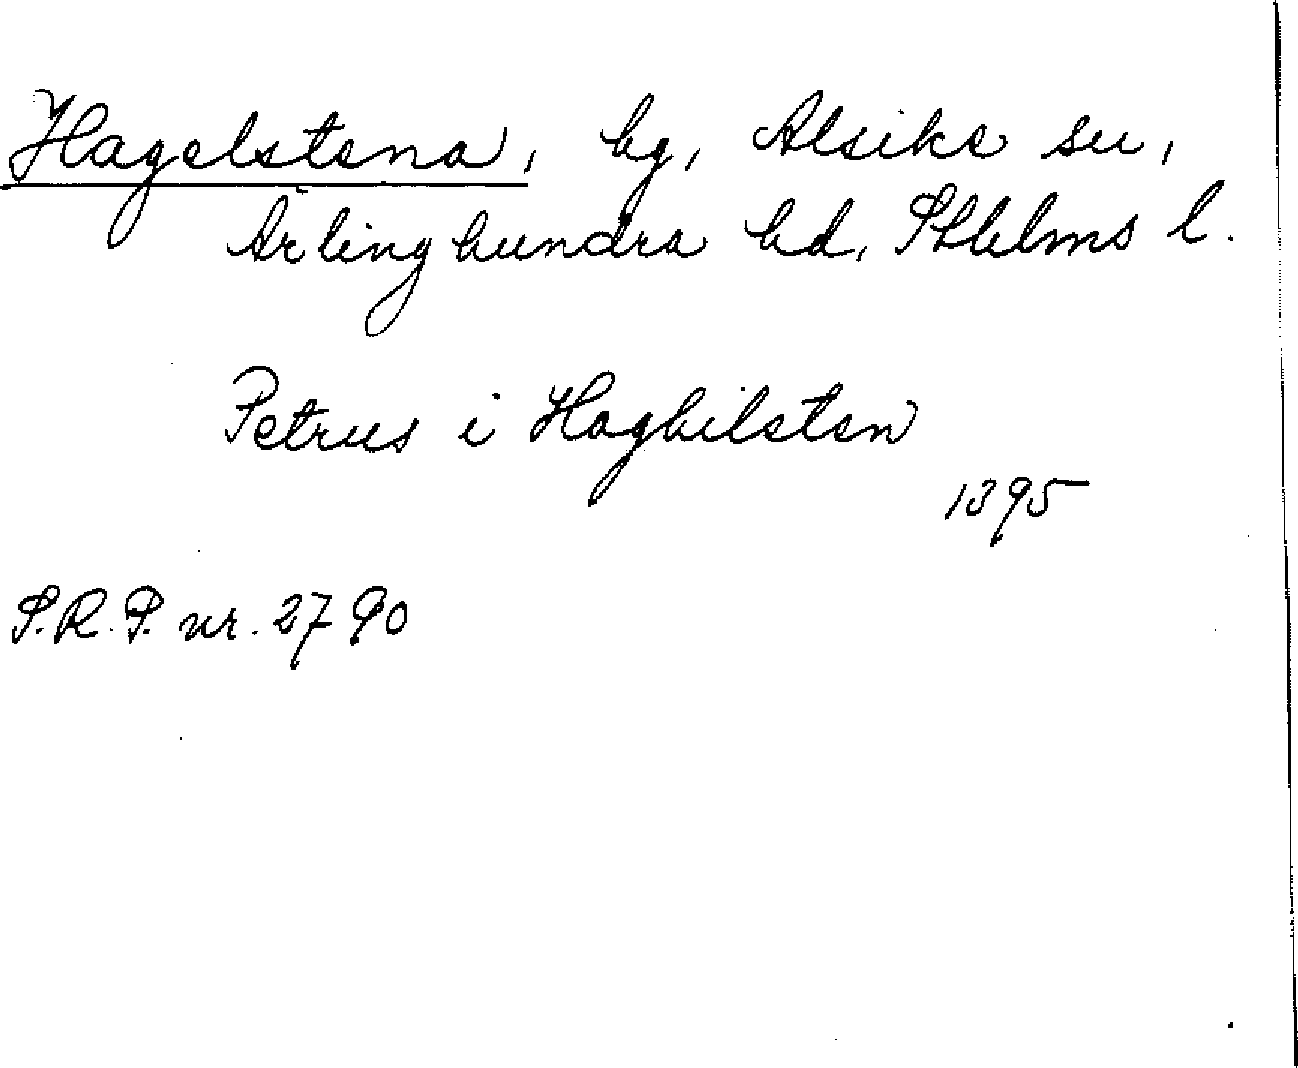 Hagelstena, by, Alsike sn,
Ärlinghundra hd, Sthlms l.
Petrus i Haghilsten
1395
S.R.P. nr. 2790